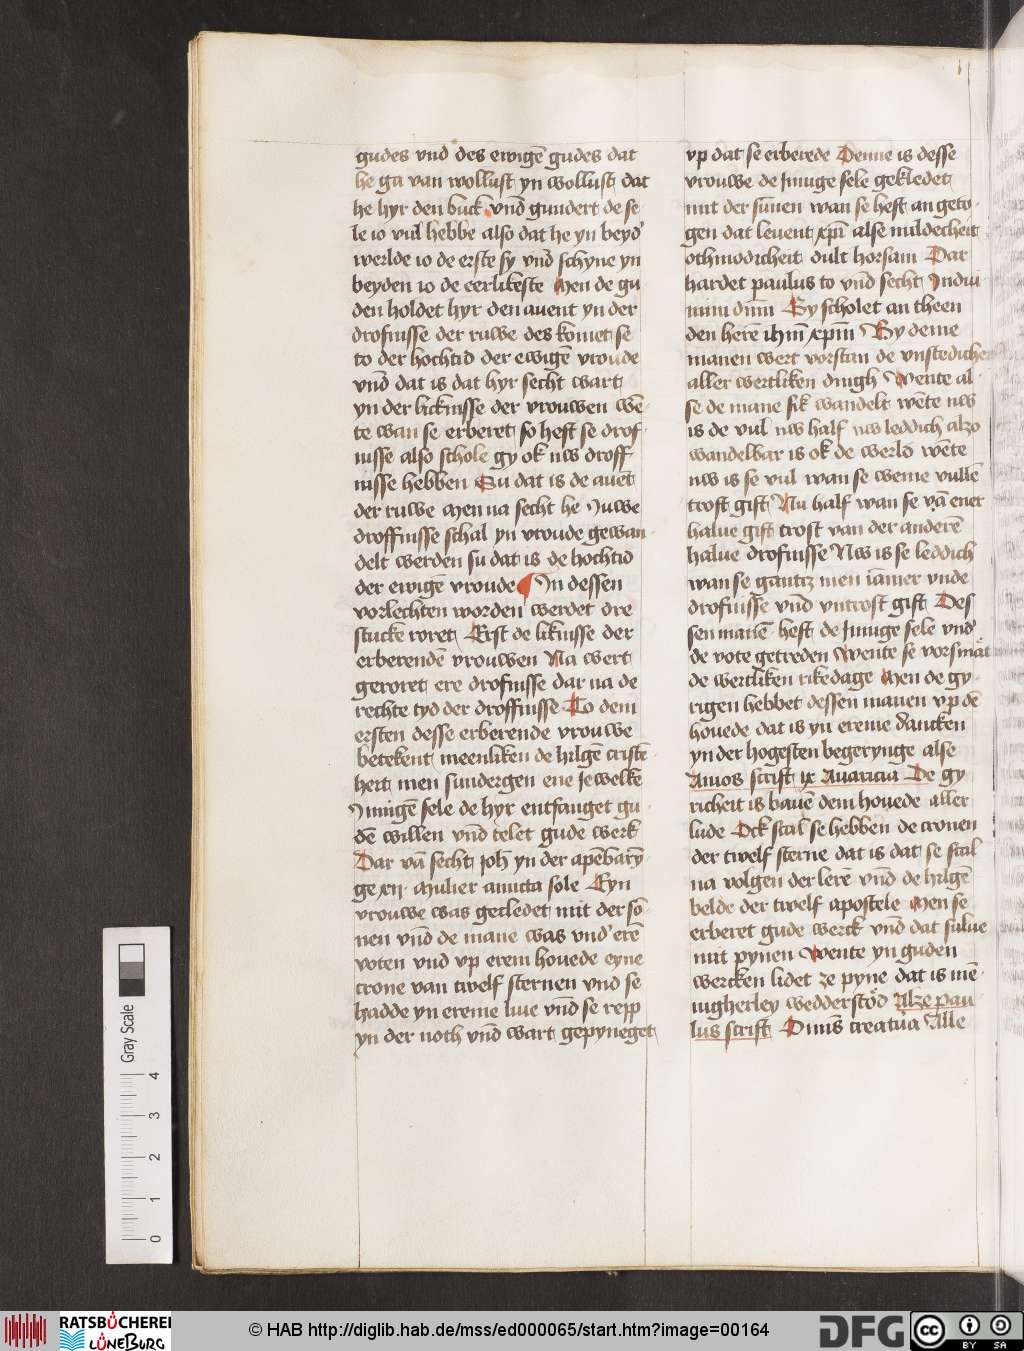 gudes vnd des ewigē gudes dat
he ga van wollust yn wollust dat
he hyr den buck vnd gundert de se
le io vul hebbe also dat he yn beyd'
werlde io de erste sy vnd schyne yn
beyden io de eerlikeste Men de gu
den holdet hyr den auent yn der
drofnisse der ruwe des komet se
to der hochtid der ewigē vroude
vnd dat is dat hyr secht wart
yn der licknisse der vrouwen wē
te wan se erberet so heft se drof
nisse also schole gy ok nw droff
nisse hebben Su dat is de auēt
der ruwe Men na secht he Juwe
droffnisse schal yn vroude gewan
delt werden su dat is de hochtid
der ewigē vroude ¶ In dessen
vorlechten worden werdet dre
stucke roret Erst de liknisse der
erberendē vrouwen Na wert
geroret ere drofnisse dar na de
rechte tyd der droffnisse To dem
ersten desse erberende vrouwe
betekent meenliken de hilgē cristē
heit men sundergen ene jewelke
Jnnigē sele de hyr entfanget gu
dē willen vnd telet gude werk
Dar vā secht joh' yn der apēbarū
ge xij Mulier amicta sole Eyn
vrouwe was gecledet mit der sō
nen vnd de mane was vnd' erē
voten vnd vp erem houede eyne
crone van twelf sternen vnd se
hadde yn ereme liue vnd se repp
yn der noth vnd wart gepyneget
vp dat se erberede Denne is desse
vrouwe de Jnnige sele gekledet
mit der sūnen wan se heft an geto
gen dat leuent xpī alse mildecheit
othmodicheit dult horsam Dar
hardet paulus to vnd secht Indui
mini dnm Gy scholet an theen
den herē ihm xpm By deme
manen wert vorstan de vnstedichē
aller wertliken dingh Wente al
se de mane sik wandelt wēte nw
is de vul nw half nw leddich alzo
wandelbar is ok de werld wēte
nw is se vul wan se weme vullē
trost gift Nu half wan se vā ener
halue gift trost van der anderē
halue drofnisse Nw is se leddich
wan se gantz men iamer vnde
drofnisse vnd vntrost gift Des
sen manē heft de Jnnige sele vnd'
de vote getreden Wente se vorsmāt
de wertliken rikedage Men de gy
rigen hebbet dessen manen vp dē
houede dat is yn ereme dancken
yn der hogesten begerynge alse
Amos scrift ix Auaricia De gy
richeit is bauē dem houede aller
lude Ock scal se hebben de cronen
der twelf sterne dat is dat se scal
na volgen der lerē vnd de hilgē
belde der twelf apostele Men se
erberet gude werck vnd dat sulue
mit pynen Wente yn guden
wercken lidet ze pyne dat is mē
nigherley wedderstod Alze pau
lus scrift Omnis creatura Alle
Gray Scale
0 1 2 3 4
RATSBÜCHEREI
LÜNEBURG
© HAB http://diglib.hab.de/mss/ed000065/start.htm?image=00164
DFG
cc
BY SA